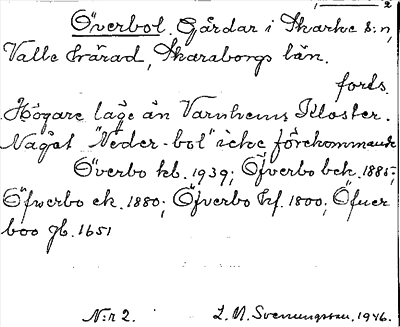 2
Överbol. Gårdar i Skarke s:n,
Valle härad, Skaraborgs län.
forts.
Högare läge än Varnhems Kloster.
Något "Neder-bol" icke förekommande
Överbo kb. 1939; Öfverbo bck. 1885;
Öfwerbo ek. 1880; Öfverbo hf. 1800; Öfuer
boo jb. 1651
N:r 2. L. N. Svenungsson. 1946.